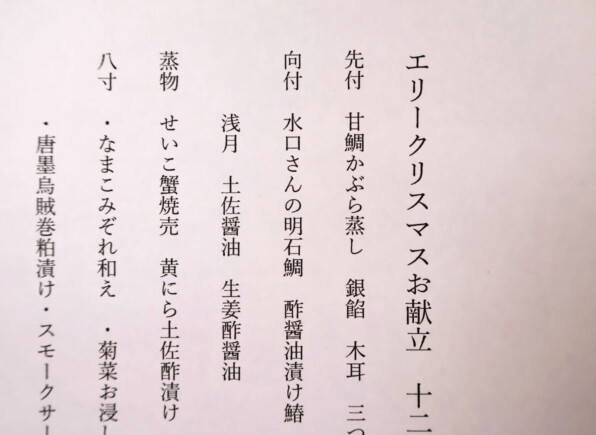 エリークリスマスお献立　十二
先付　甘鯛かぶら蒸し　銀餡　木耳　三つ
向付　水口さんの明石鯛　酢醤油漬け鰆
浅月　土佐醤油　生姜酢醤油
蒸物　せいこ蟹焼売　黄にら土佐酢漬け
八寸　・なまこみぞれ和え　・菊菜お浸し
・唐墨烏賊巻粕漬け・スモークサー